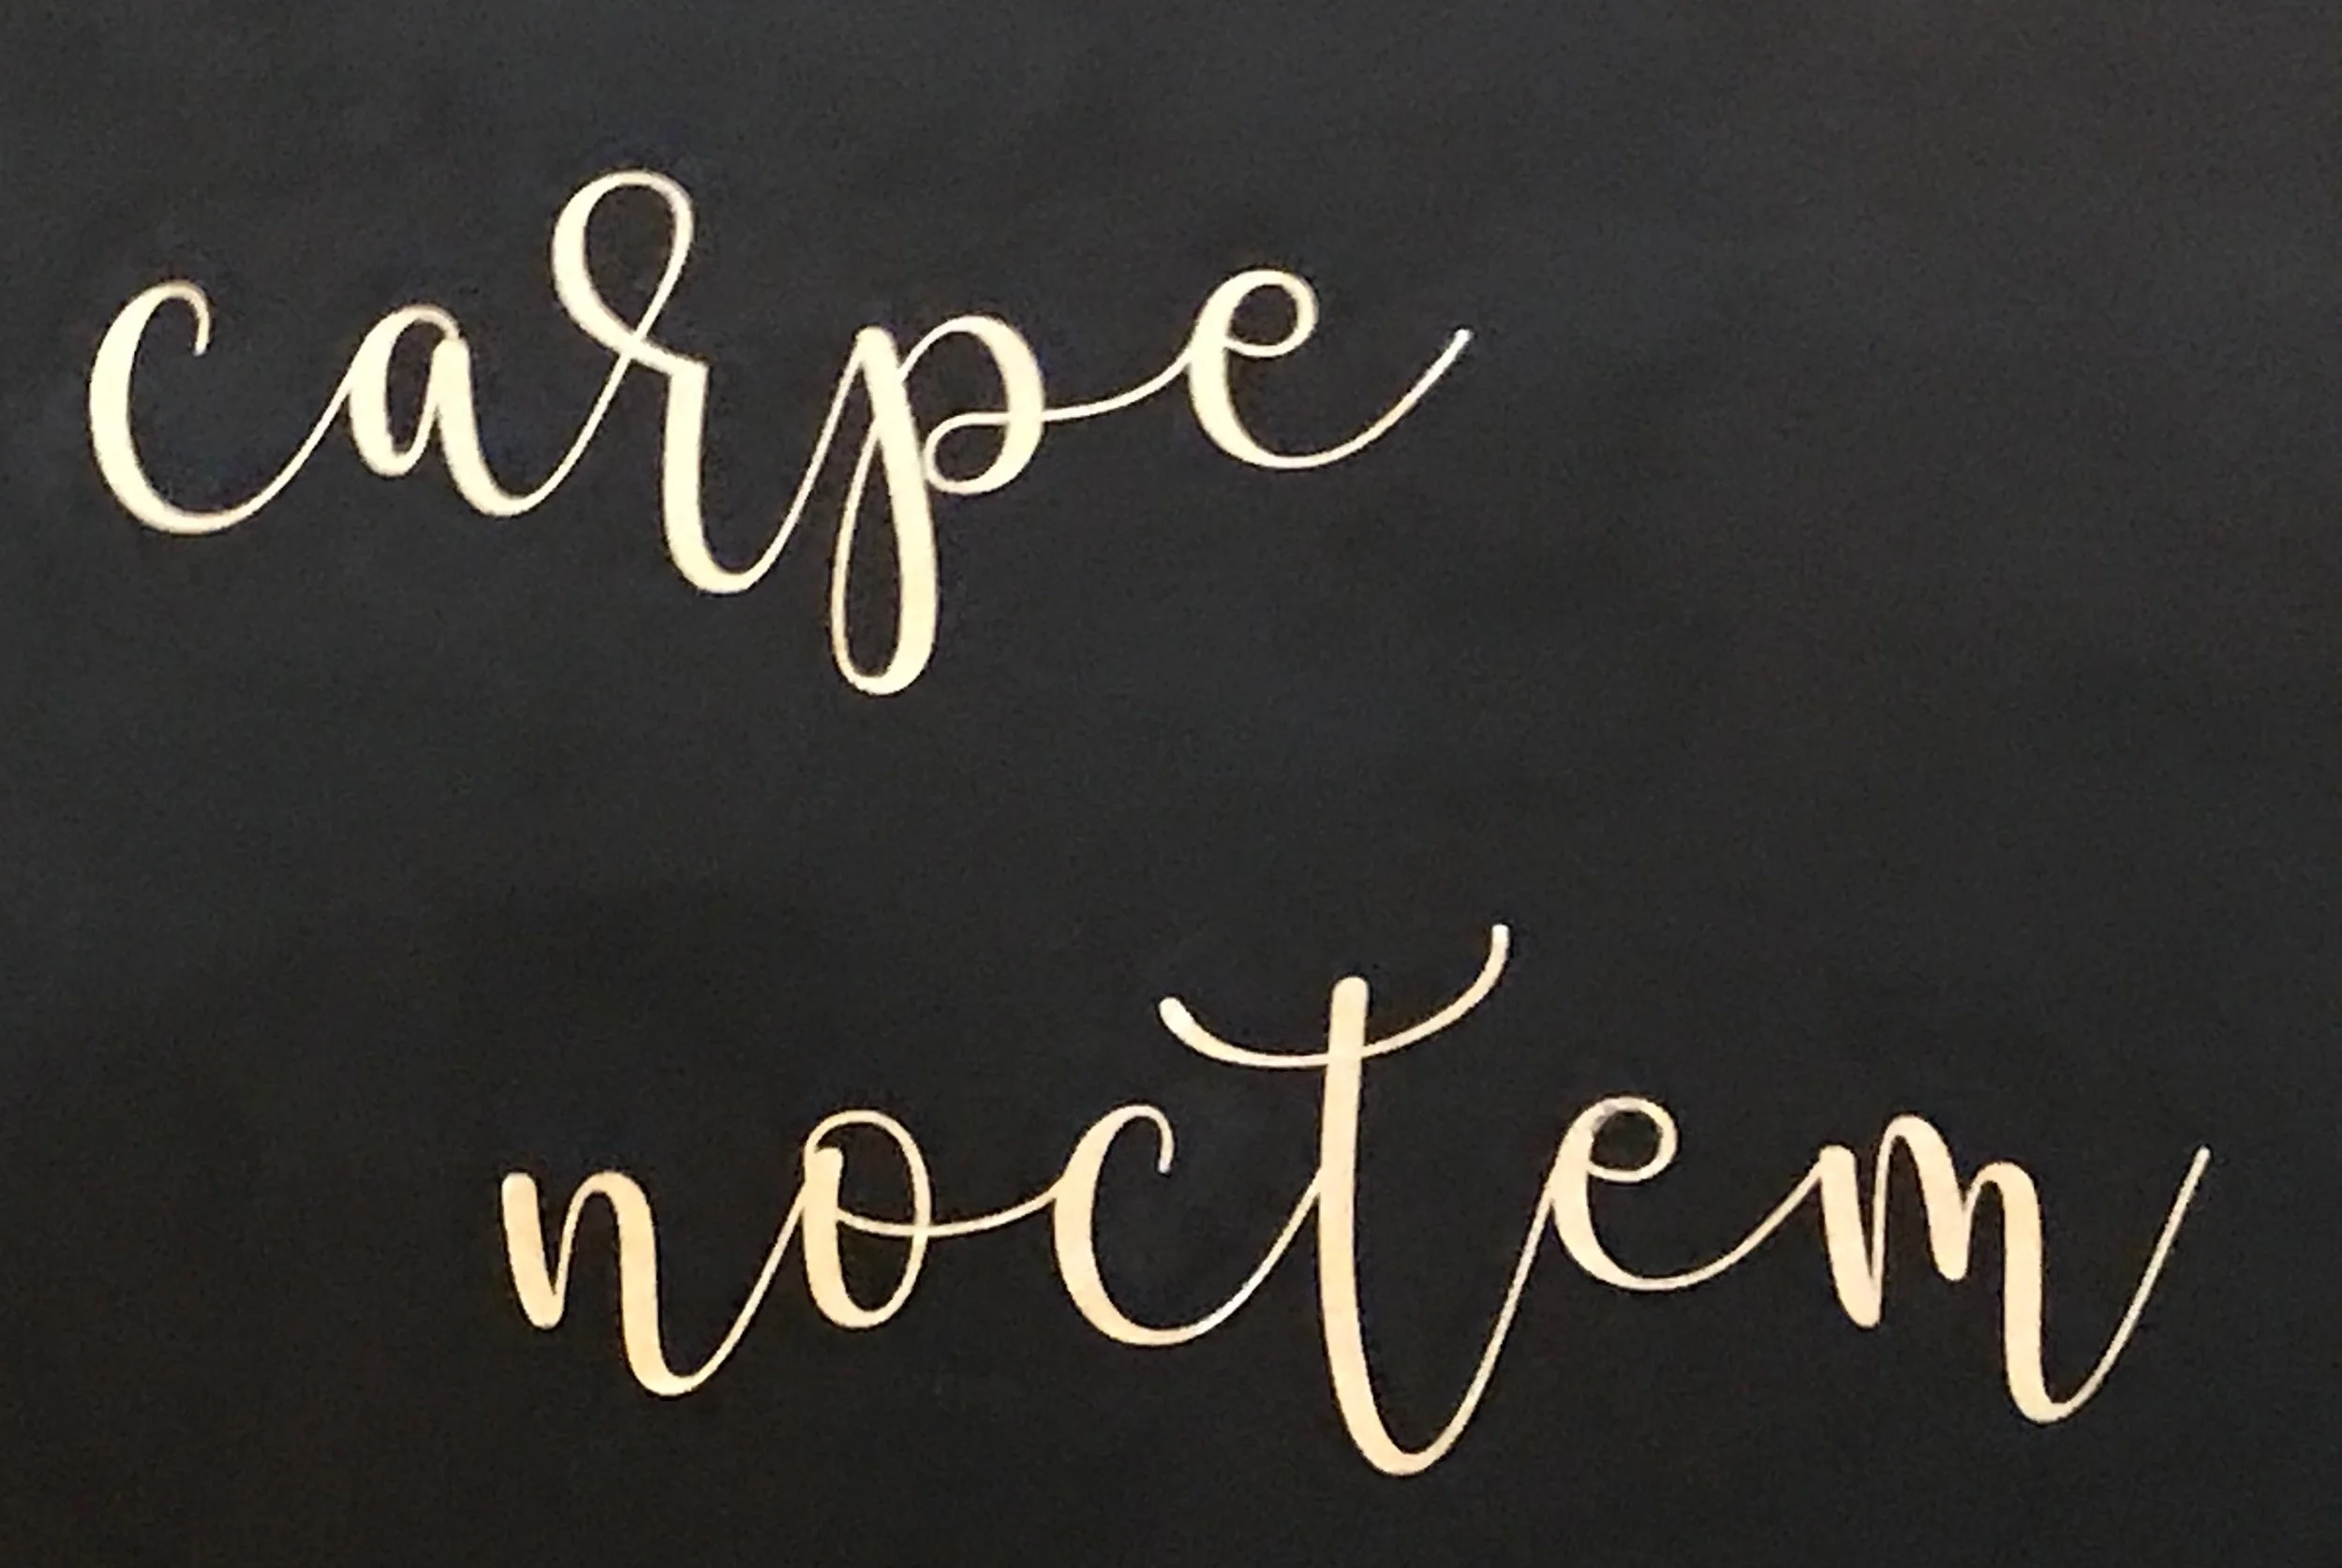 carpe
noctem